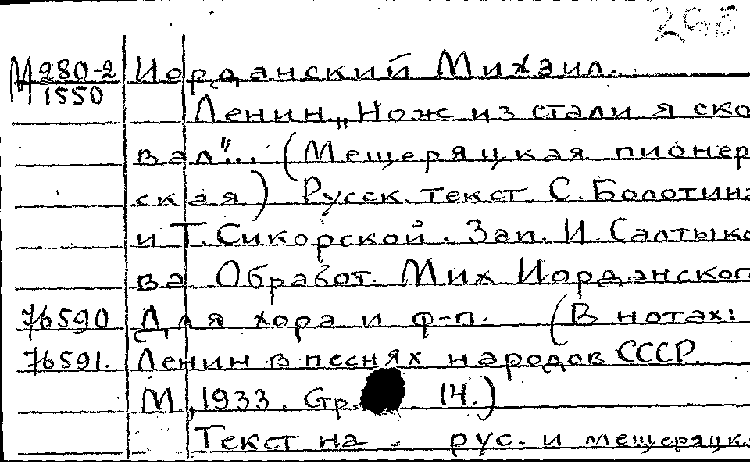 298
М280-2 Иорданский Михаил.
1550
Ленин „Нож из стали я ско
вал"... (Мещеряцкая пионер
ская) Русск. текст С. Болотина
и Т. Сикорской. Зап. И. Салтыко
ва Обработ. Мих Иорданского
76590 Для хора и ф-п. (В нотах:
76591. Ленин в песнях народов СССР
М, 1933. Стр. 14.)
Текст на . рус. и мещеряцк.